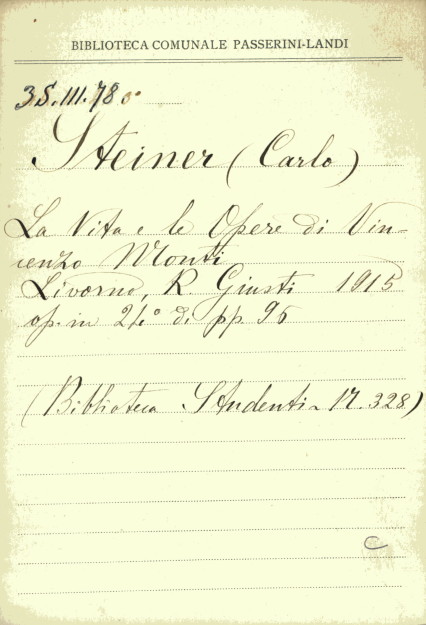 BIBLIOTECA COMUNALE PASSERINI-LANDI
3S.III.78
Steiner (Carlo)
La Vita e le Opere di Vin-
cenzo Monti
Livorno, R. Giusti 1915
op. in 24° di pp 95
(Biblioteca Studenti N. 328)
C